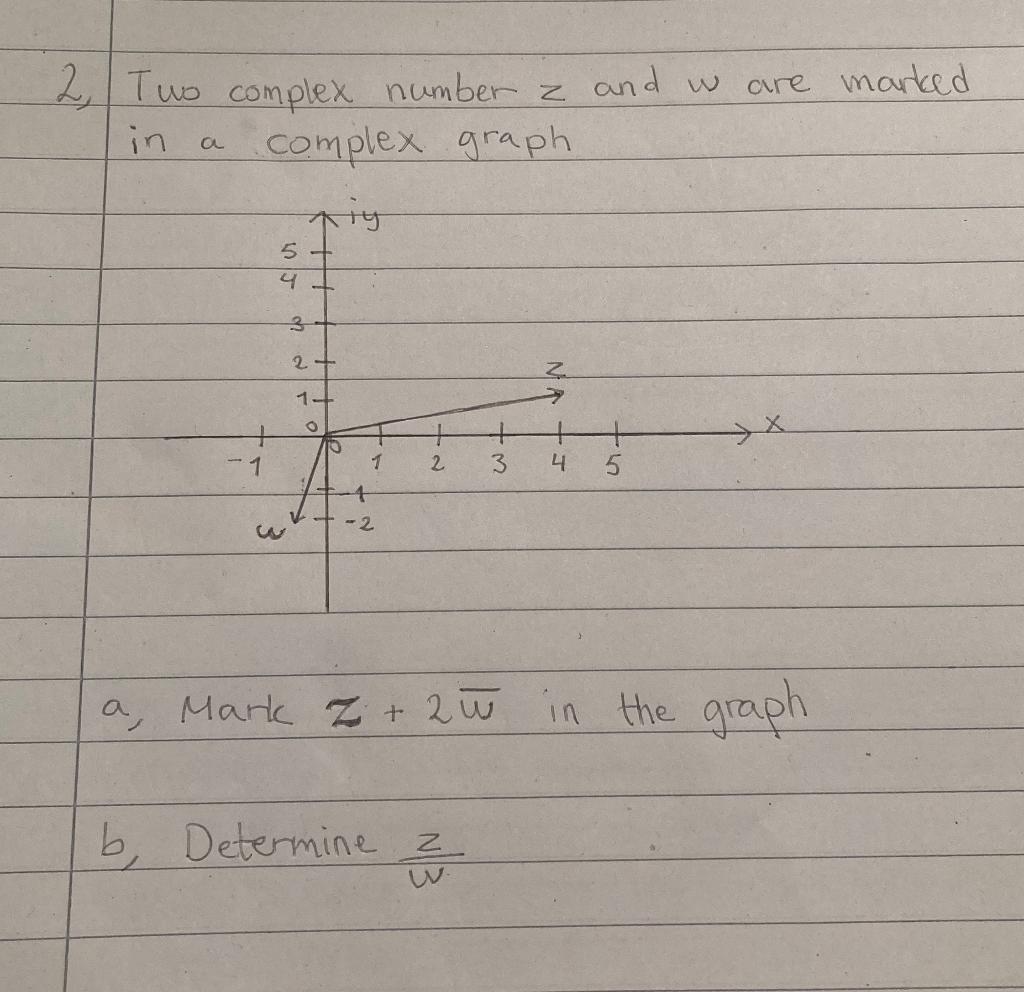 2, Two complex number z and w are marked
in a complex graph
iy
5
4
3
2
z
1
0
x
-1 0 1 2 3 4 5
-1
w -2
a, Mark z + 2w̅ in the graph
b, Determine z/w